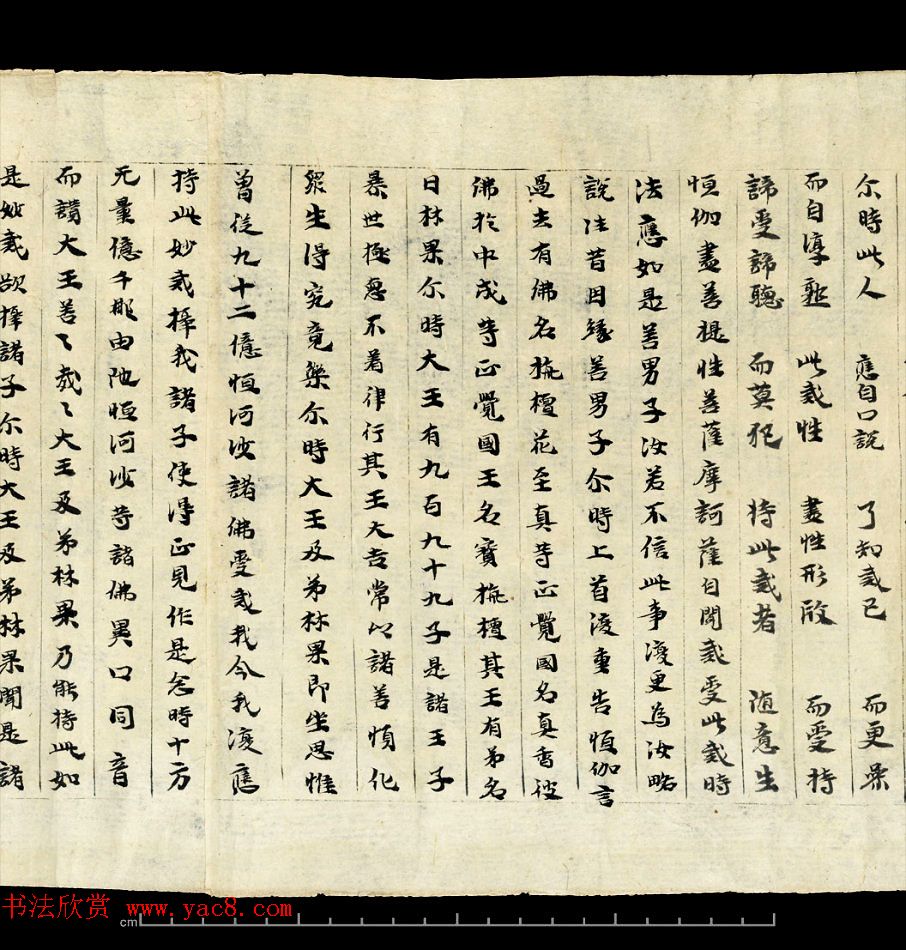 尒時此人 應自口說 了知戒已 而更
而自淳 此戒性 盡性形 而受持
諦受諦聽 而莫犯 持此戒者 随意生
恒伽盡善根性善薩摩訶薩自聞戒受此戒時
法應如是善男子汝若不信此事復更為汝略
說法昔因緣善男子尒時上首復重告恒伽言
過去有佛名栴檀花至真等正覺國名真香彼
佛於中成等正覺國王名寶栴檀其王有弟名
日林果尒時大王有九百九十九子是諸王子
暴世極惡不着律行其王大吉常以諸善順化
眾生得究竟樂尒時大王及弟林果即坐思惟
曾從九十二億恒河沙諸佛受戒我今我復應
持此妙戒擇我諸子使得正見作是念時十方
无量億千那由陁恒河沙等諸佛異口同音
而讃大王善〻哉〻大王及弟林果乃能持此如
是妙戒欲擇諸子尒時大王及弟林果聞是諸
书法欣赏 www.yac8.com
cm